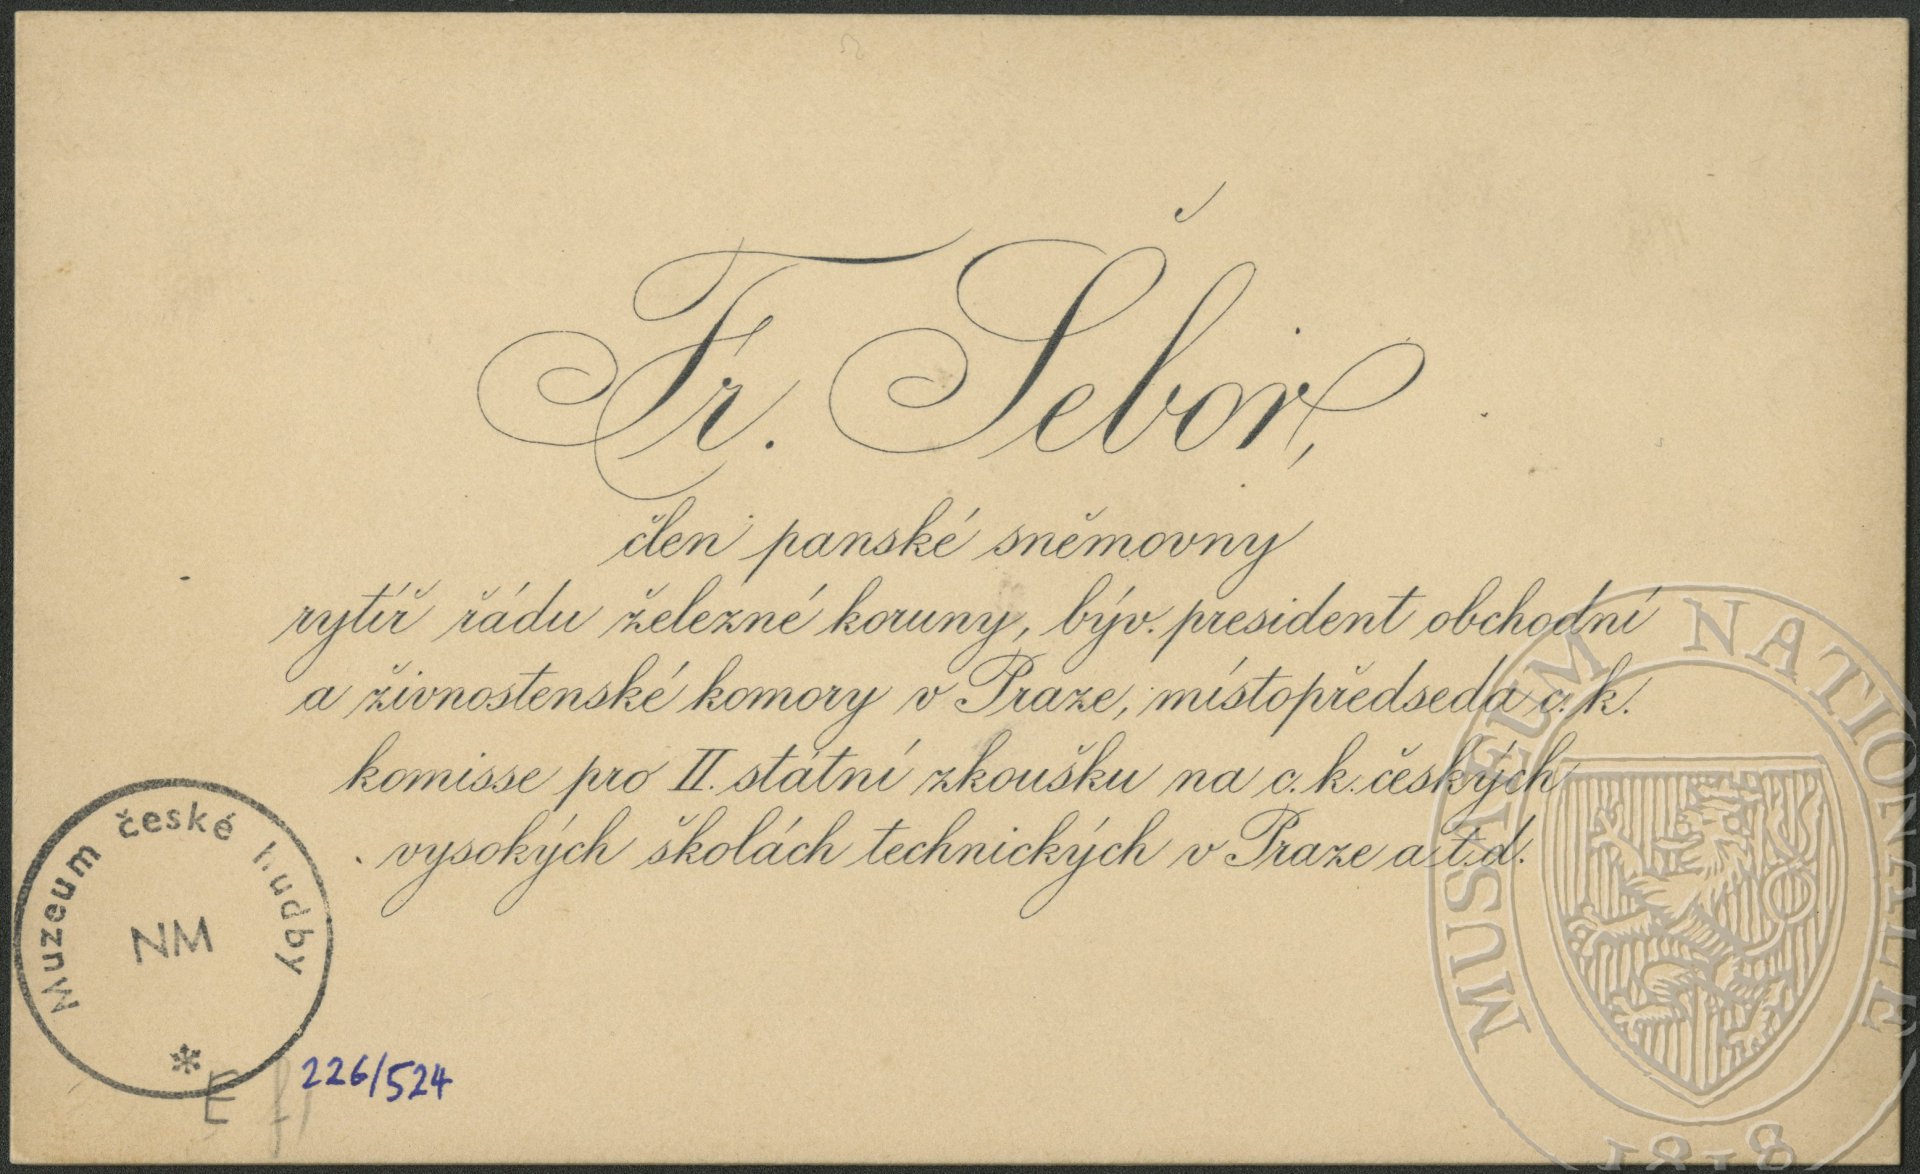 Fr. Šebor,
člen panské sněmovny
rytíř řádu železné koruny, býv. president obchodní
a živnostenské komory v Praze, místopředseda c. k.
komisse pro II. státní zkoušku na c. k. českých
vysokých školách technických v Praze a.t.d.
Muzeum české hudby
NM
E
226/524
MUSAEUM NATIONALE
1818